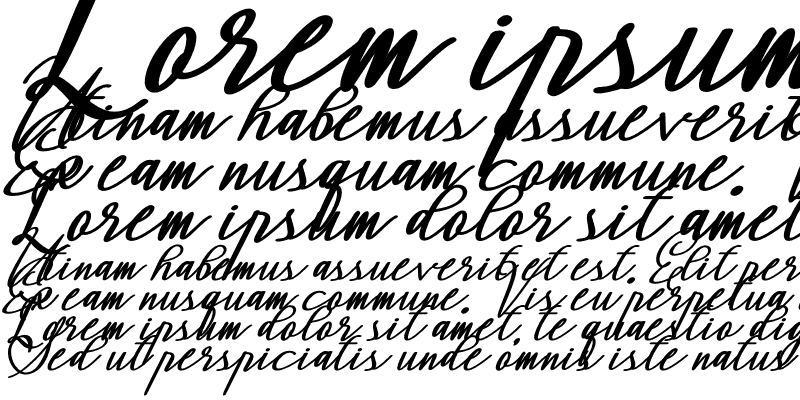 Lorem ipsum
Utinam habemus assueverit
Ex eam nusquam commune.
Lorem ipsum dolor sit amet
Utinam habemus assueverit et est. Elit per
Ex eam nusquam commune. Vis eu perpetua
Lorem ipsum dolor sit amet, te quaestio dig
Sed ut perspiciatis unde omnis iste natus